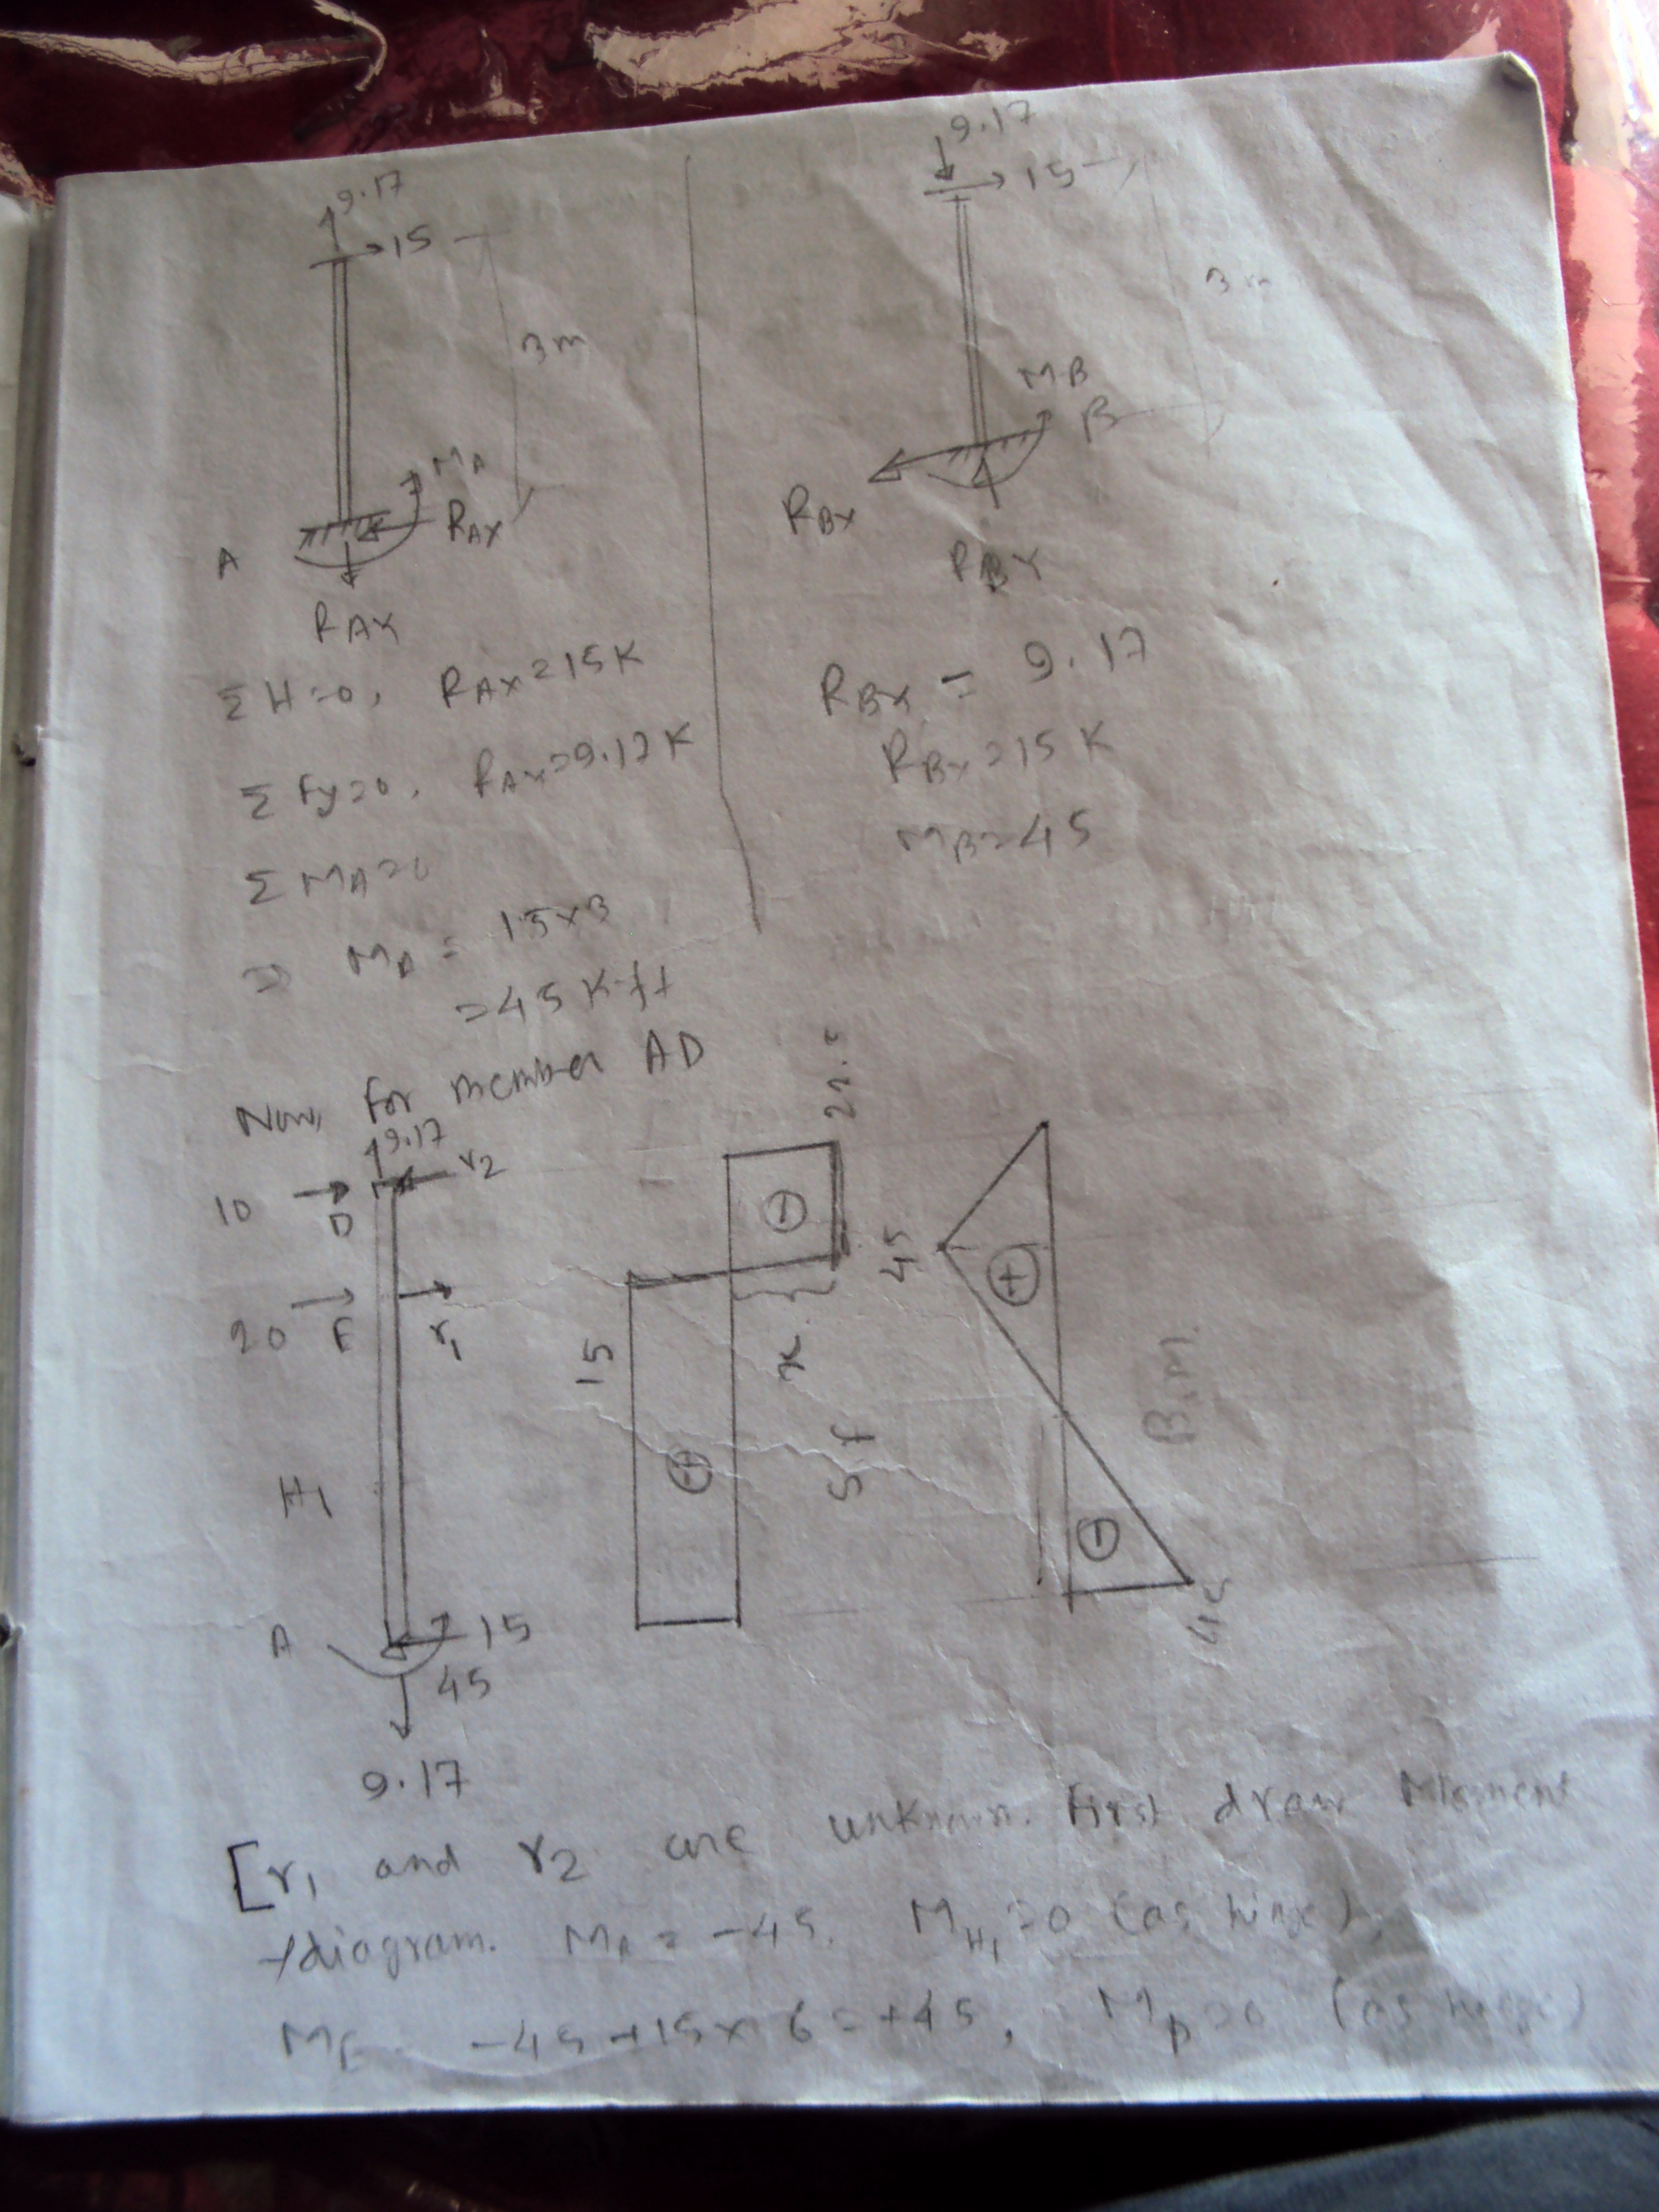 9.17
15
3m
MA
RAX
A
RAY
ΣH=0, RAX=15K
ΣFy=0, RAY=9.17K
ΣMA=0
⇒ MA = 15×3
=45 K-ft
9.17
15
3m
MB
B
RBX
RBY
RBY = 9.17
RBX=15 K
MB=45
Now, for member AD
9.17
r2
10
D
20 F
r1
H1
A
15
45
9.17
22.5
15
x
SF
45
B.M.
45
[r1 and r2 are unknown. First draw Moment
diagram. MA = -45. MH1=0 (as hinge),
MF = -45+15×6=+45, MD=0 (as hinge)